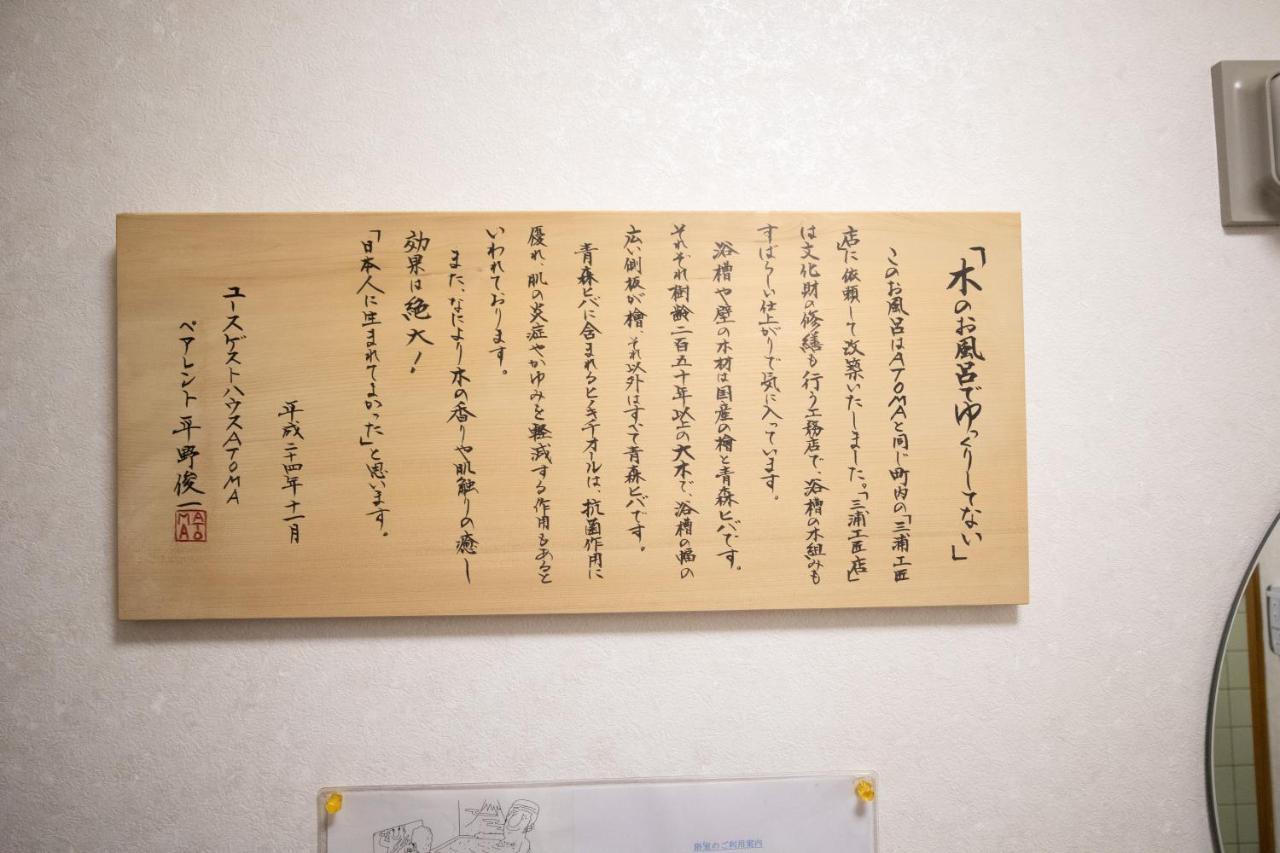 「木のお風呂でゆっくりしてない」
このお風呂はATOMAと同じ町内の「三浦工匠
店」に依頼して改築いたしました。「三浦工匠店」
は文化財の修繕も行う工務店で、浴槽の木組みも
すばらしい仕上がりで気に入っています。
浴槽や壁の木材は国産の檜と青森ヒバです。
それぞれ樹齢二百五十年以上の大木で、浴槽の幅の
広い側板が檜、それ以外はすべて青森ヒバです。
青森ヒバに含まれるヒノキチオールは、抗菌作用に
優れ、肌の炎症やかゆみを軽減する作用もあると
いわれております。
また、なにより木の香りや肌触りの癒し
効果は絶大!
「日本人に生まれてよかった」と思います。
平成二十四年十一月
ユースゲストハウスATOMA
ペアレント 平野俊一
ATO
MA
浴室のご利用案内